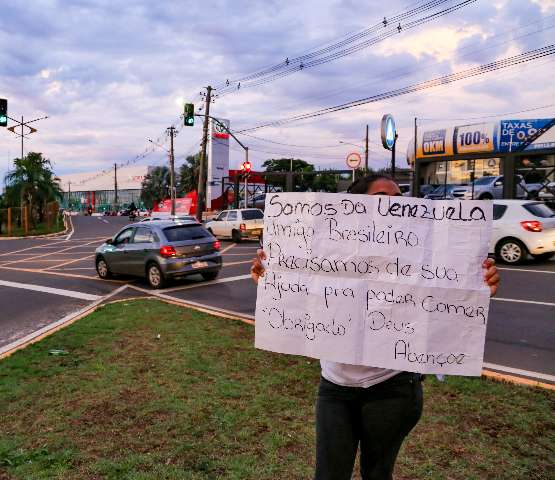 Somos Da Venezuela
Amigo Brasileiro
Precisamos de sua
Ajuda pra poder Comer
"Obrigado" Deus
Abençoe
0KM
100%
TAXAS
DE 0,